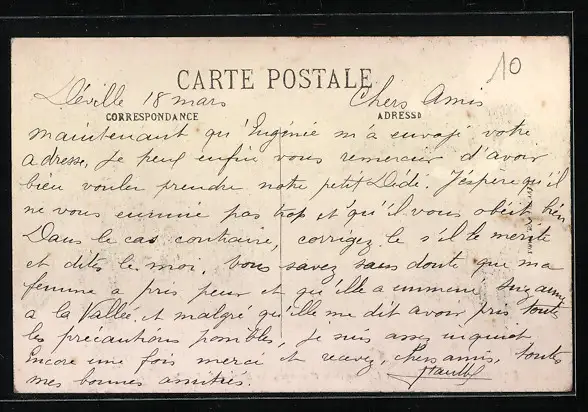 10
CARTE POSTALE
Déville 18 mars Chers Amis
CORRESPONDANCE ADRESSE
maintenant qu'Eugénie m'a envoyé votre
adresse, je peux enfin vous remercier d'avoir
bien voulu prendre notre petit Dédé. J'espère qu'il
ne vous ennuie pas trop et qu'il vous obéit bien
Dans le cas contraire, corrigez le s'il le mérite
et dites le moi. Vous savez sans doute que ma
femme a pris peur et qu'elle a emmené Suzanne
a la Vallée, et malgré qu'elle me dit avoir pris toutes
les précautions possibles, je suis assez inquiet.
Encore une fois merci et recevez, chers amis, toutes
mes bonnes amitiés.